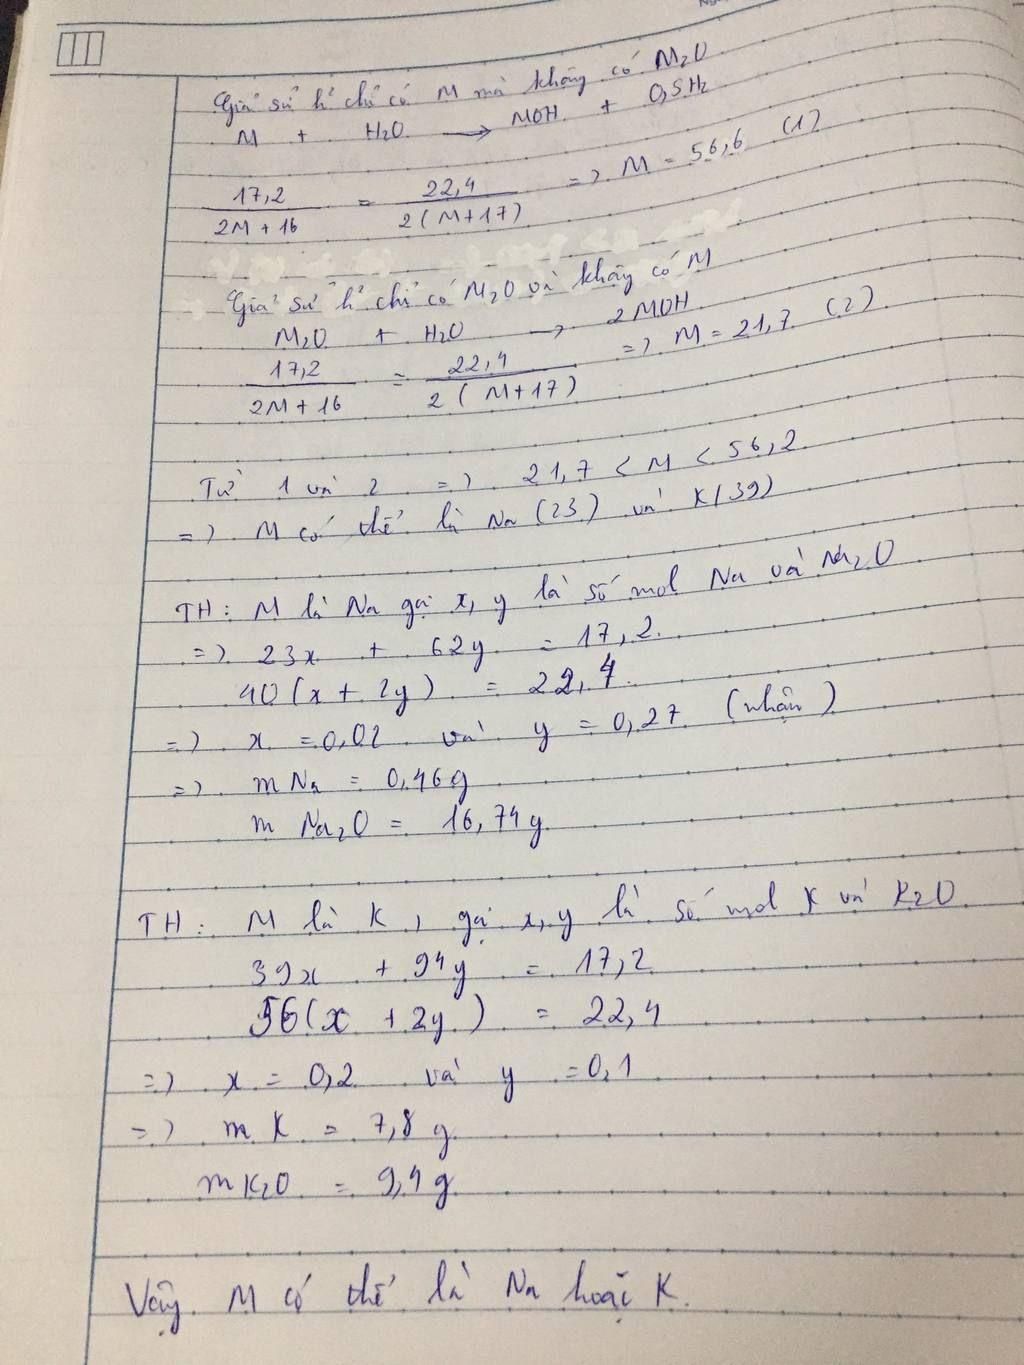 Giả sử h² chỉ có M mà không có M₂O
M + H₂O → MOH + 0,5H₂
17,2 / 2M + 16 = 22,4 / 2(M+17) => M = 56,6 (1)
Giả sử h² chỉ có M₂O và không có M
M₂O + H₂O → 2MOH
17,2 / 2M + 16 = 22,4 / 2(M+17) => M = 21,7 (2)
Từ 1 và 2 => 21,7 < M < 56,2
=> M có thể là Na (23) và K(39)
TH: M là Na gọi x, y là số mol Na và Na₂O
=> 23x + 62y = 17,2
40(x + 2y) = 22,4
=> x = 0,02 và y = 0,27 (nhận)
=> m Na = 0,46g
m Na₂O = 16,74g
TH: M là K, gọi x, y là số mol K và K₂O
39x + 94y = 17,2
56(x + 2y) = 22,4
=> x = 0,2 và y = 0,1
=> m K = 7,8 g
m K₂O = 9,4g
Vậy M có thể là Na hoặc K.